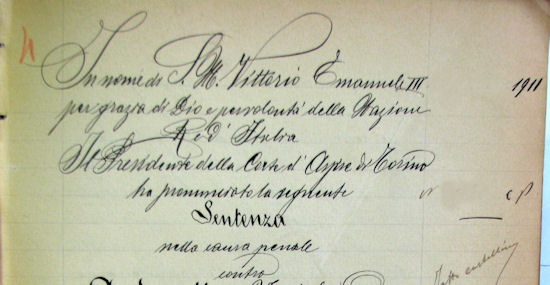 In nome di S. M. Vittorio Emanuele III
1911
per grazia di Dio e per volontà della Nazione
Re d'Italia
Il Presidente della Corte d'Assise di Torino
ha pronunciato la seguente
Sentenza
nella causa penale
contro